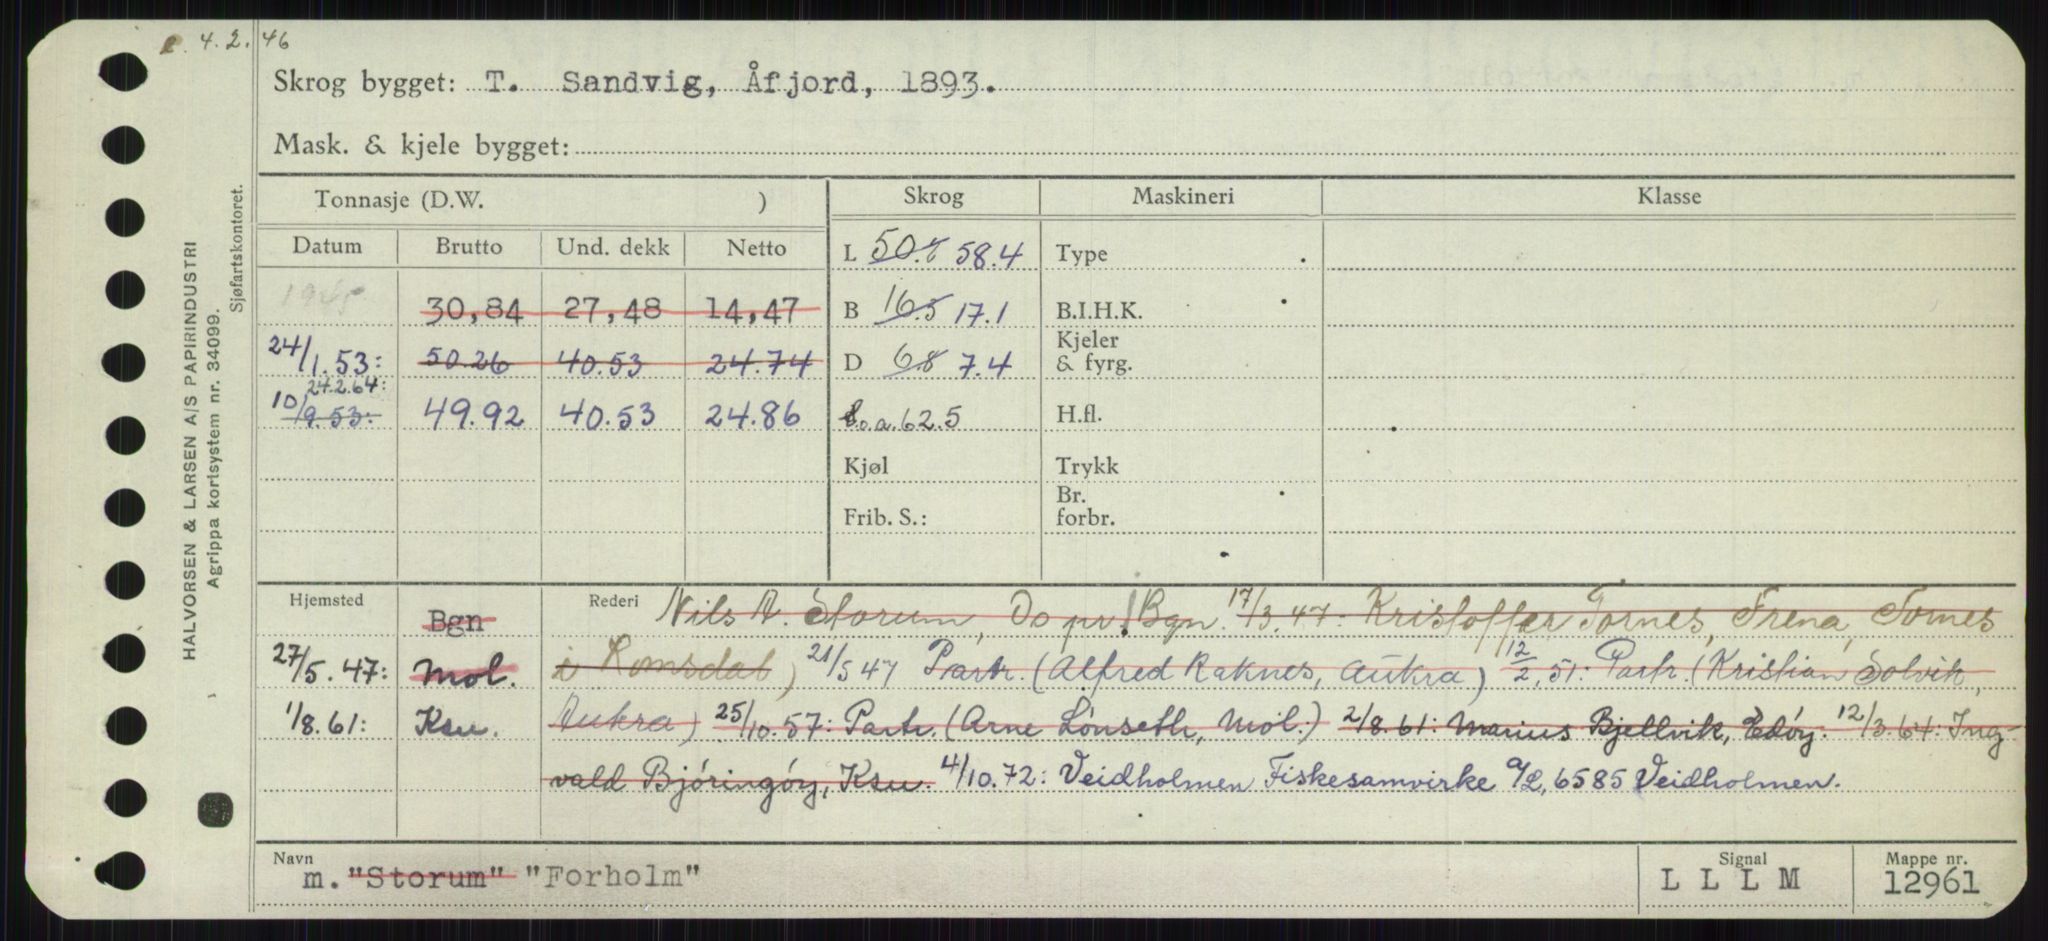 4.2.46
Skrog bygget: T. Sandvig, Åfjord, 1893.
Mask. & kjele bygget:
HALVORSEN & LARSEN A/S PAPIRINDUSTRI
Agrippa kortsystem nr. 34099.
Sjøfartskontoret.
Tonnasje (D.W. ) Skrog Maskineri Klasse
Datum Brutto Und. dekk Netto L 50.7 58.4 Type
1945 30,84 27,48 14,47 B 16.5 17.1 B.I.H.K.
24/1.53: 50.26 40.53 24.74 D 6.8 7.4 Kjeler & fyrg.
24.2.64:
10/9.53: 49.92 40.53 24.86 l.o.a. 62.5 H.fl.
Kjøl Trykk
Frib. S.: Br. forbr.
Hjemsted Bgn Rederi Nils A. Storum, Do pr. Bgn. 17/3.47: Kristoffer Tornes, Frena, Tornes
27/5.47: Mol. i Romsdal) 21/5 47 Partr. (Alfred Raknes, Aukra) 12/2.51: Partr. (Kristian Solvik,
1/8.61: Ksu. Aukra) 25/10.57: Partr. (Arne Lönseth, Mol.) 2/8.61: Marius Bjellvik, Edöy. 12/3.64: Ing-
vald Björingöy, Ksu. 4/10.72: Veidholmen Fiskesamvirke a/L, 6585 Veidholmen.
Navn m. "Storum" "Forholm" Signal L L L M Mappe nr. 12961